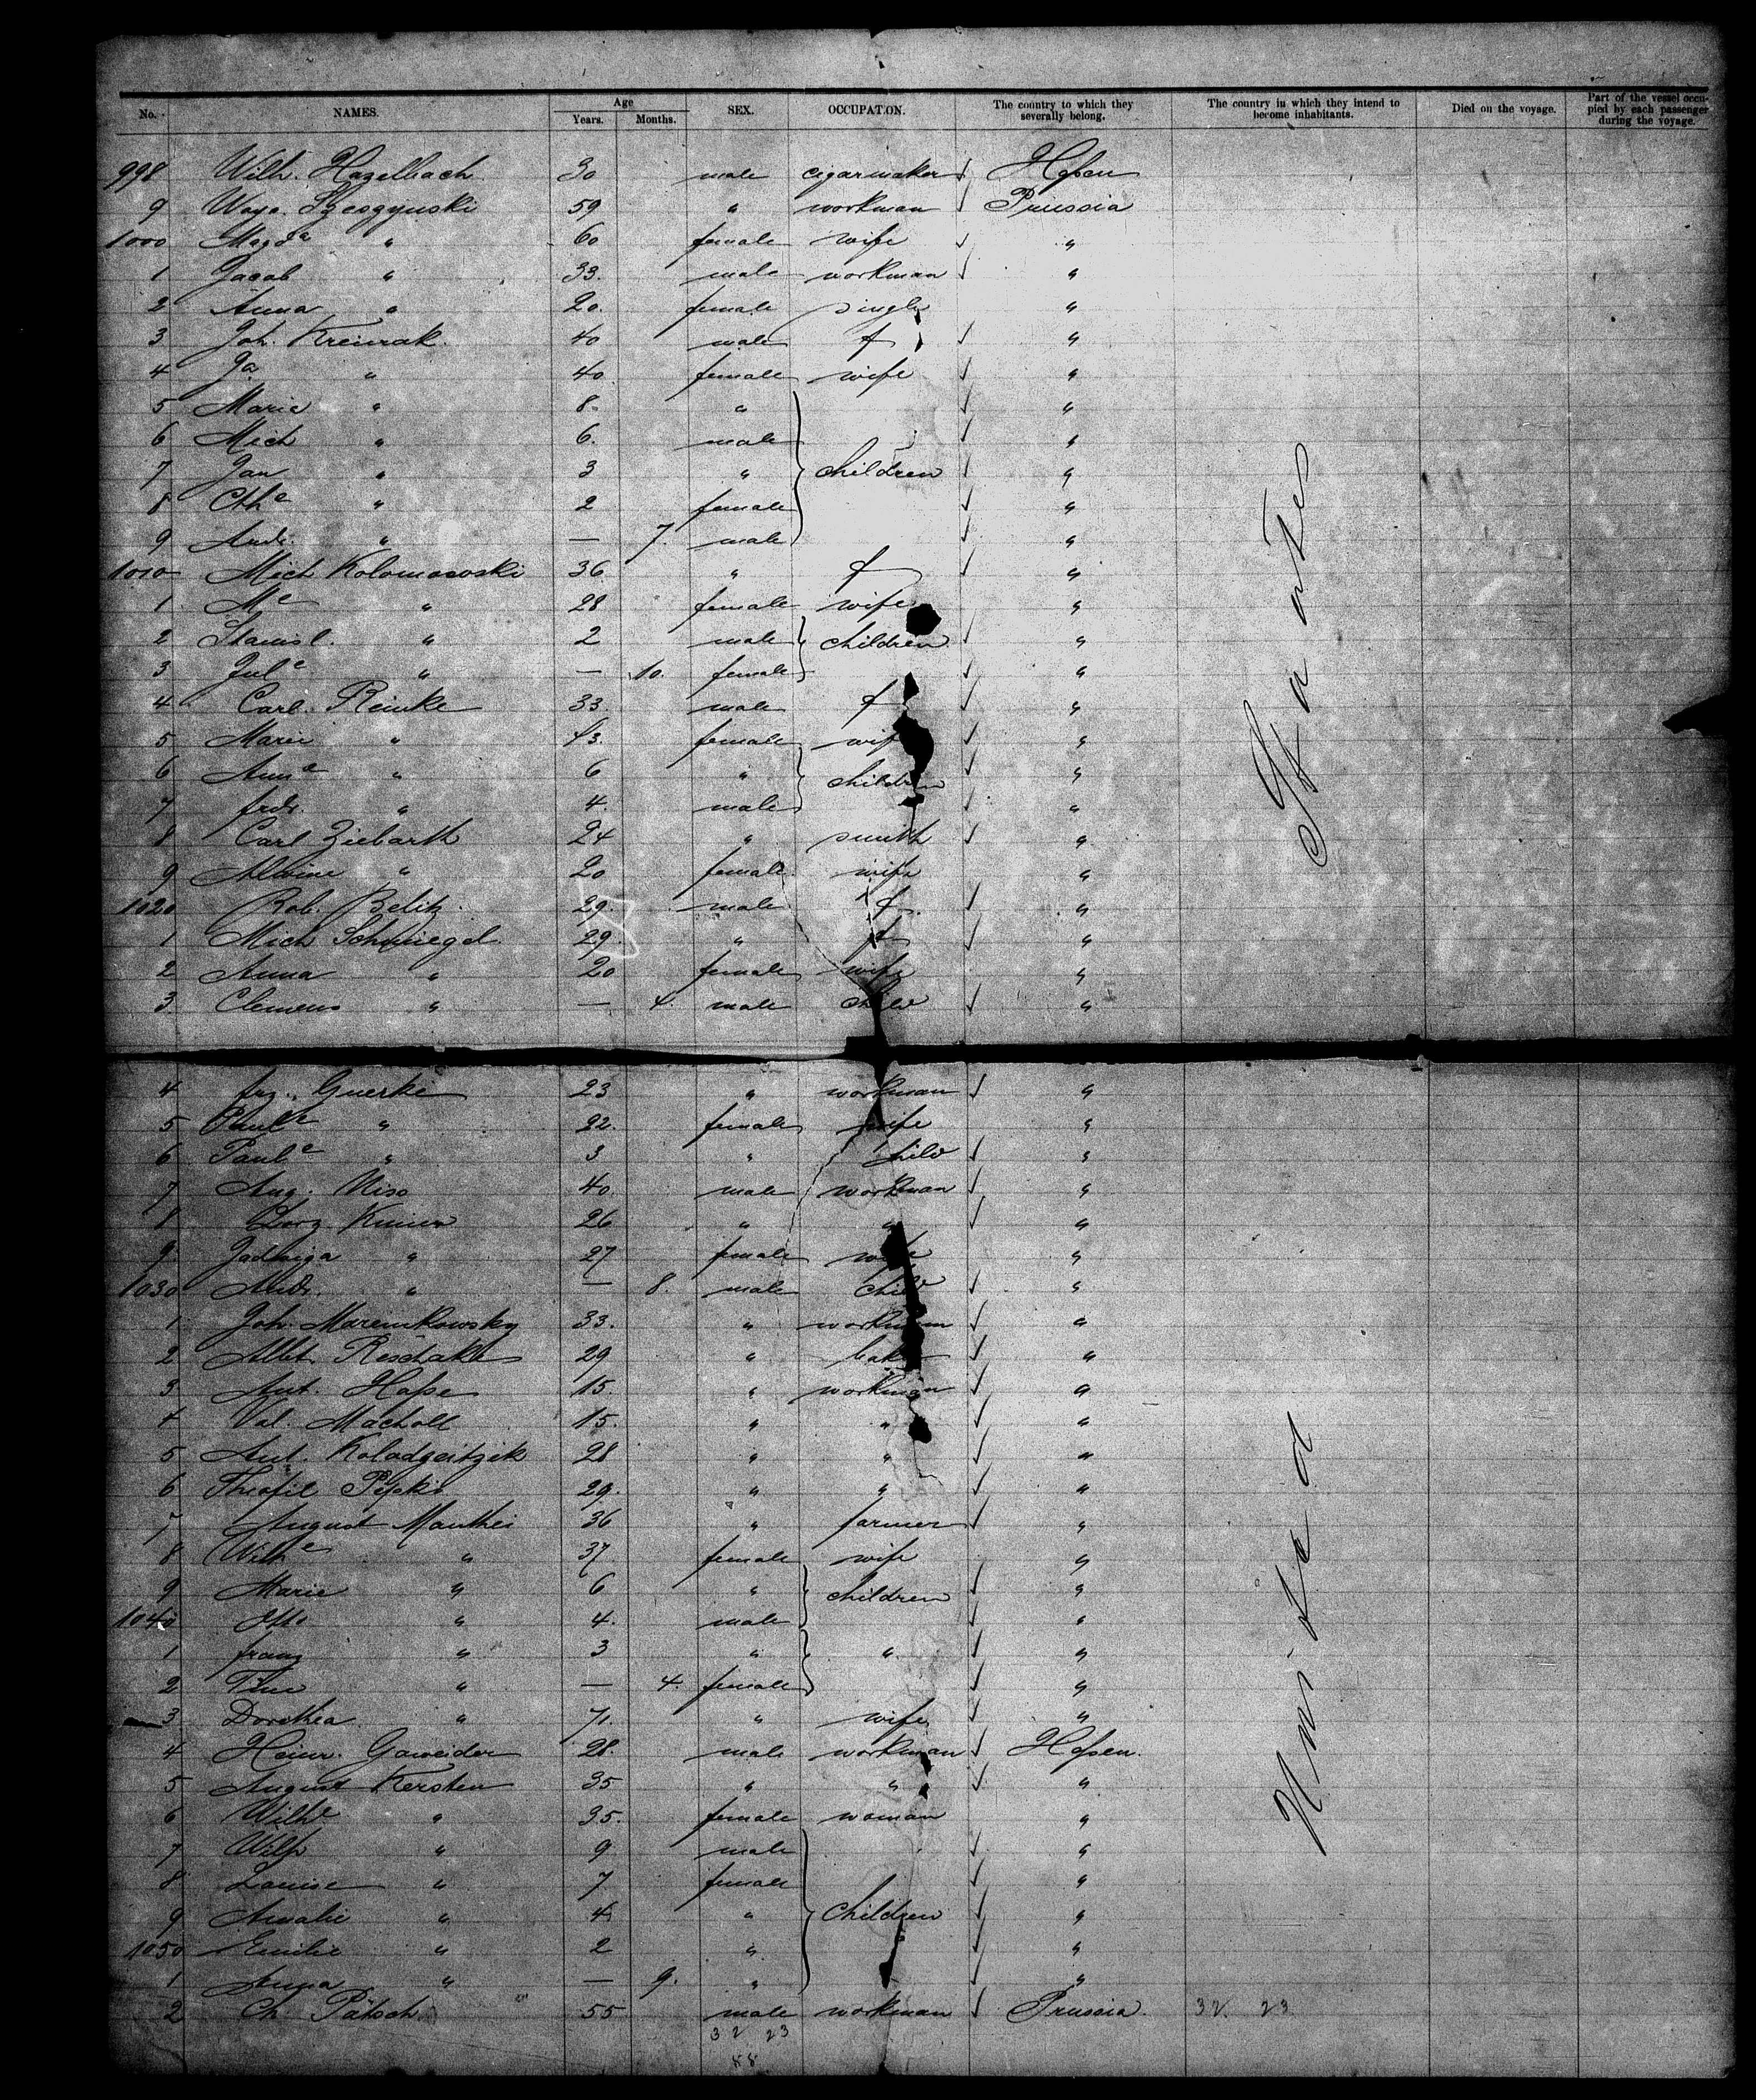 No. NAMES. Age Years. Months. SEX. OCCUPATION. The country to which they severally belong. The country in which they intend to become inhabitants. Died on the voyage. Part of the vessel occupied by each passenger during the voyage.
998 Wilh. Hazelbach 30 male cigarmaker Hessen
9 Woyc. Szesgynski 59 " workman Prussia
1000 Magda " 60 female wife "
1 Jacob " 33. male workman "
2 Anna " 20. female single "
3 Joh. Kreinrak. 40 male f "
4 Ja " 40. female wife "
5 Marie " 8. " "
6 Mich " 6. male "
7 Jan " 3 " children "
8 Cthe " 2 female "
9 Andr. " — 7. male "
1010 Mich Kolomasoski 36 " f "
1 Me " 28 female wife "
2 Stanisl. " 2 male children "
3 Jule " — 10. female "
4 Carl. Reinke 33. male f "
5 Marie " 43. female wife "
6 Anna " 6 " children "
7 Frdr. " 4. male "
8 Carl Ziebarth 24 " smith "
9 Alwine " 20 female wife "
1020 Rob. Belitz 29. male f "
1 Mich Schmiegel. 29. " f "
2 Anna " 20 female wife "
3 Clemens " — 4. male child "
4 Frz. Guerke 23 " workman "
5 Paule " 22. female wife "
6 Paule " 3 " child "
7 Aug. Niss 40. male workman "
8 Kniwa 26 " " "
9 Jadwiga " 27 female wife "
1030 Andr. " — 8. male child "
1 Joh. Marcinkowsky 33. " workman "
2 Albt. Reschake 29 " baker "
3 Ant. Hasse 15. " workman "
4 Val. Macholl 15. " " "
5 Ant. Koladzeitzik 28 " " "
6 Theofil 29. " " "
7 August Manthei 36 " farmer "
8 Wilhe " 37 female wife "
9 Marie " 6 " children "
1040 Otto " 4. male "
1 Franz " 3 " " "
2 Tine " — 4. female "
3 Dorothea " 71. " wife "
4 Heinr. Gaweider 28. male workman Hessen.
5 August Kersten 35 " " "
6 Wilhe " 35. female woman "
7 Wilh " 9. male "
8 Louise " 7 female "
9 Amalie " 4 " Children "
1050 Emilie " 2 " "
1 Anna " — 9. " "
2 Ch Pätsch. 55 male workman Prussia. 32 23
32 23
88
United States